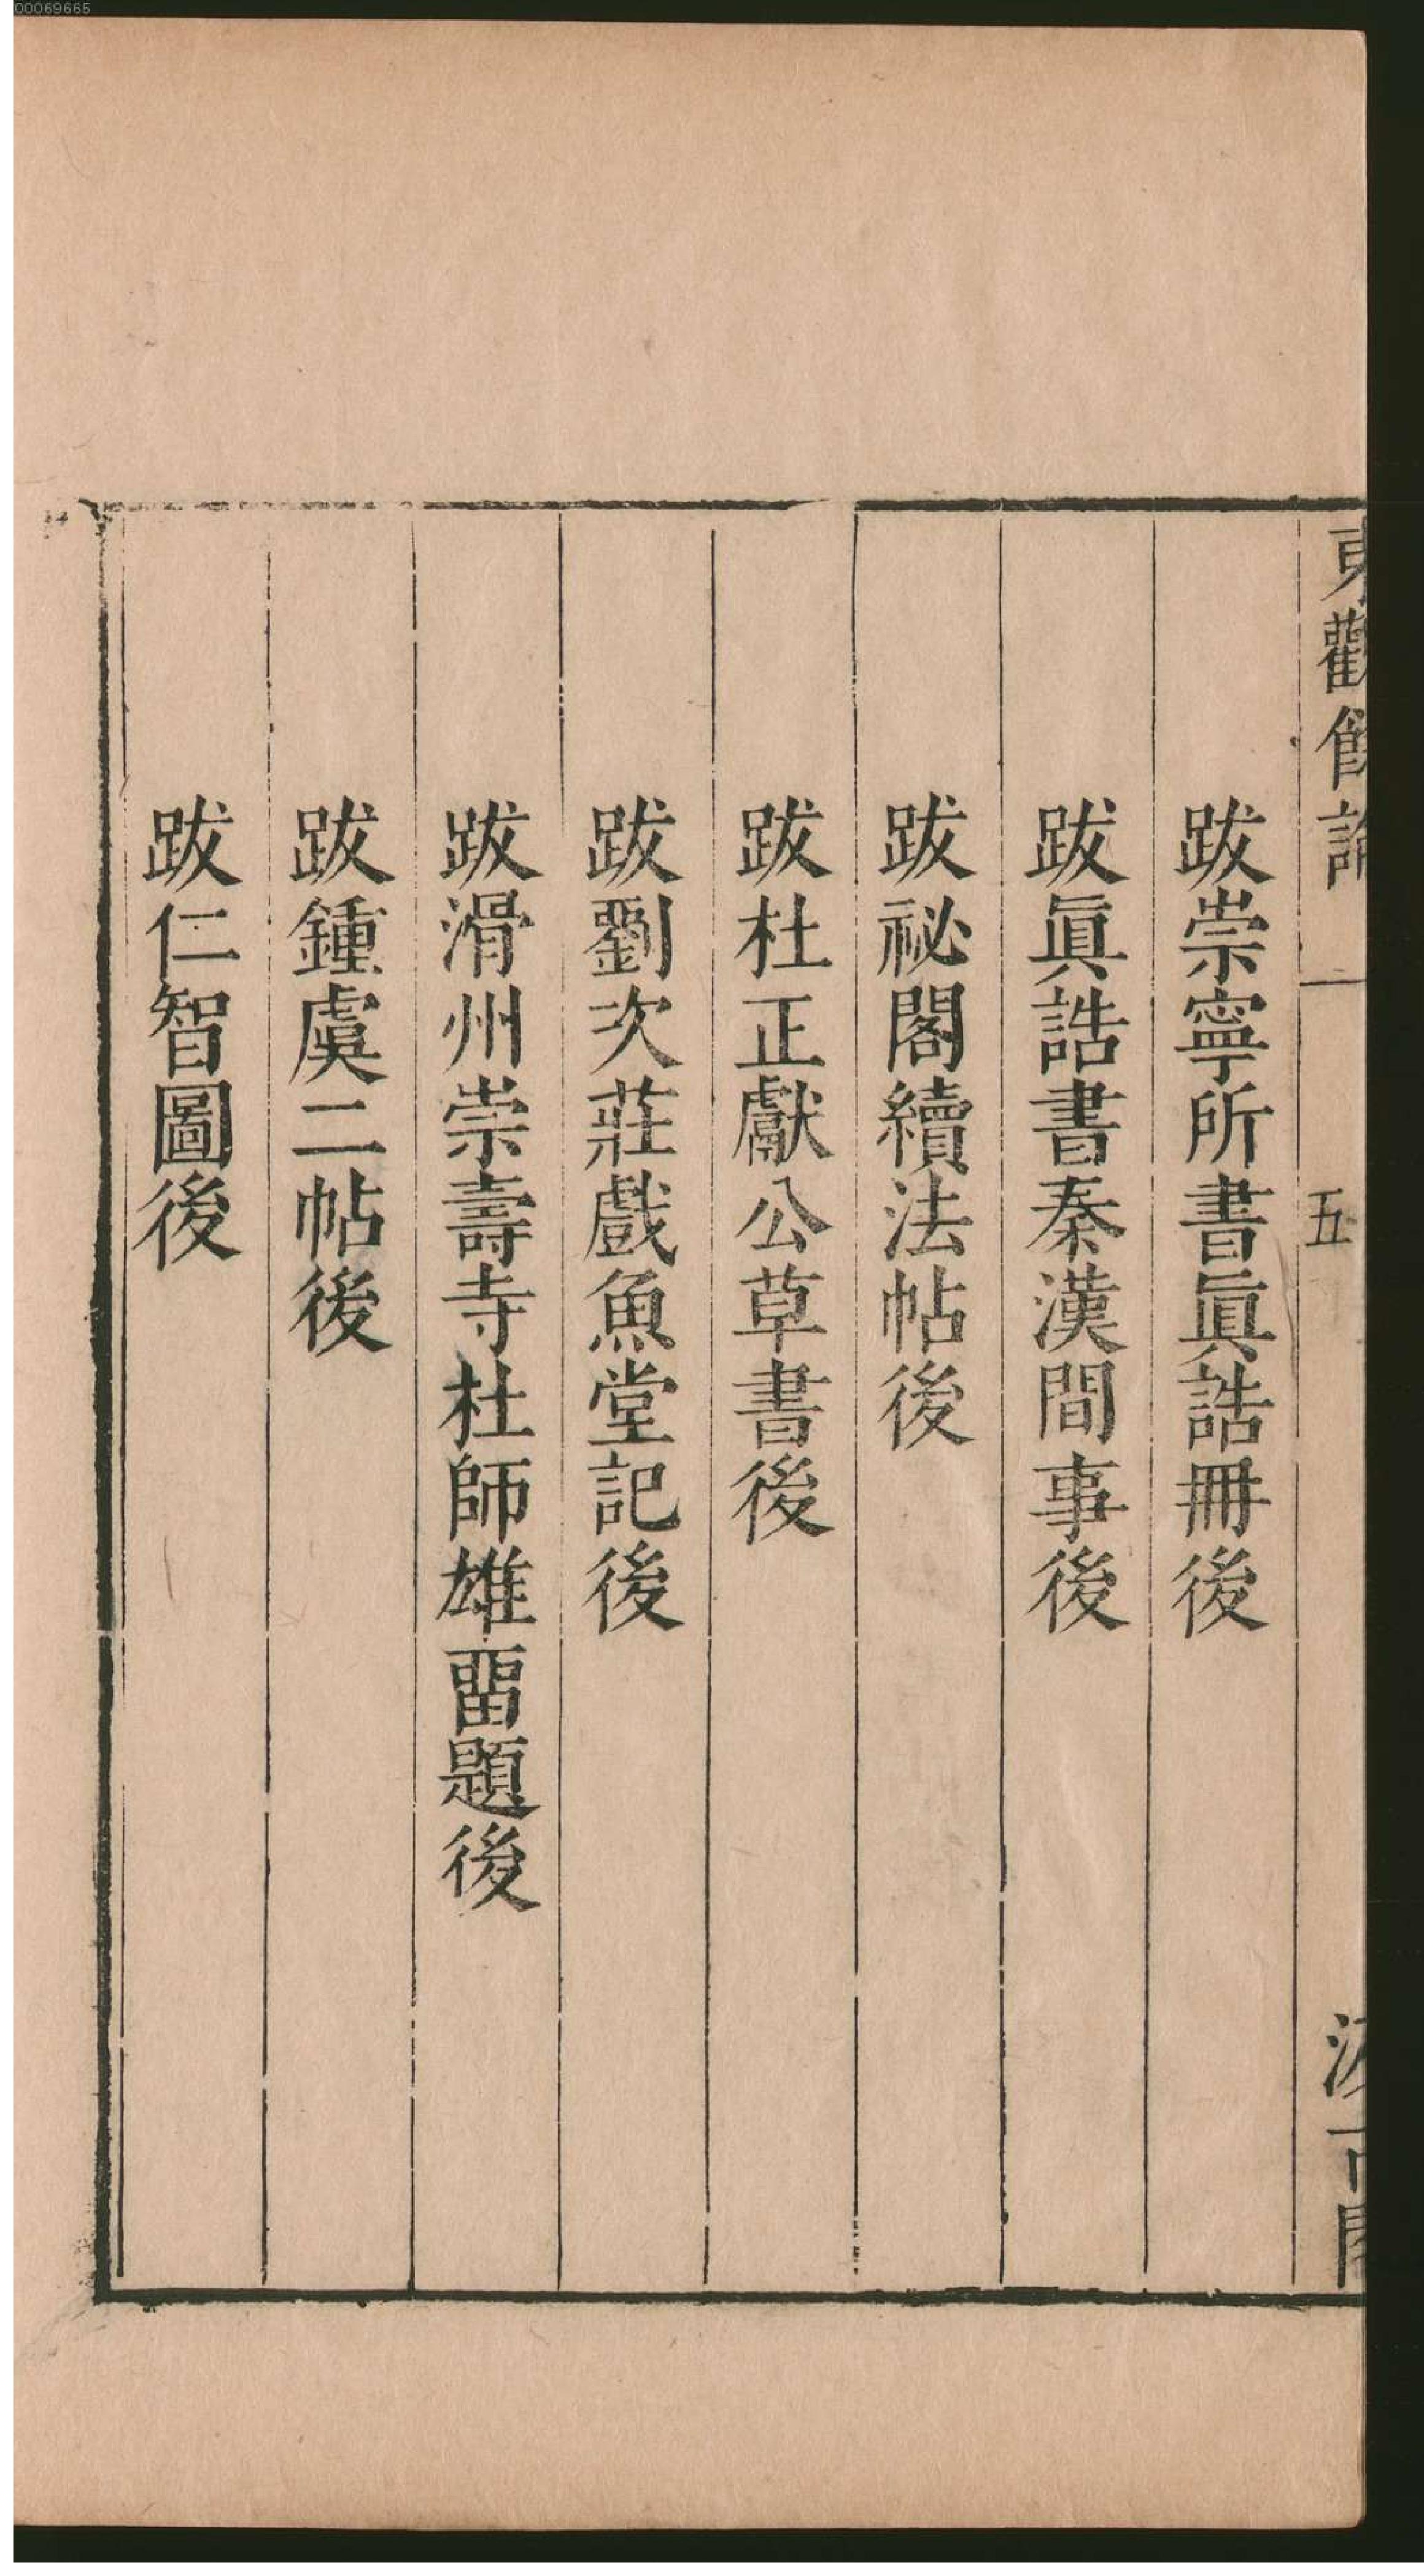 00069665
東觀餘論
五
汲古閣
跋崇寧所書眞誥冊後
跋眞誥書秦漢間事後
跋祕閣續法帖後
跋杜正獻公草書後
跋劉次莊戲魚堂記後
跋滑州崇壽寺杜師雄畱題後
跋鍾虞二帖後
跋仁智圖後